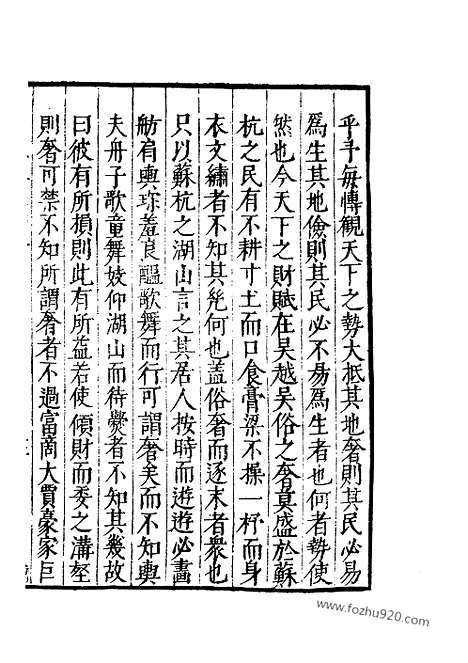 乎予每博觀天下之勢大抵其地奢則其民必易
為生其地儉則其民必不易為生者也何者勢使
然也今天下之財賦在吳越吳俗之奢莫盛於蘇
杭之民有不耕寸土而口食膏粱不操一杼而身
衣文繡者不知其幾何也蓋俗奢而逐末者衆也
只以蘇杭之湖山言之其居人按時而遊遊必畫
舫肩輿珍羞良醞歌舞而行可謂奢矣而不知輿
夫舟子歌童舞妓仰湖山而待爨者不知其幾故
曰彼有所損則此有所益若使傾財而委之溝壑
則奢可禁不知所謂奢者不過富商大賈豪家巨
www.fozhu920.com